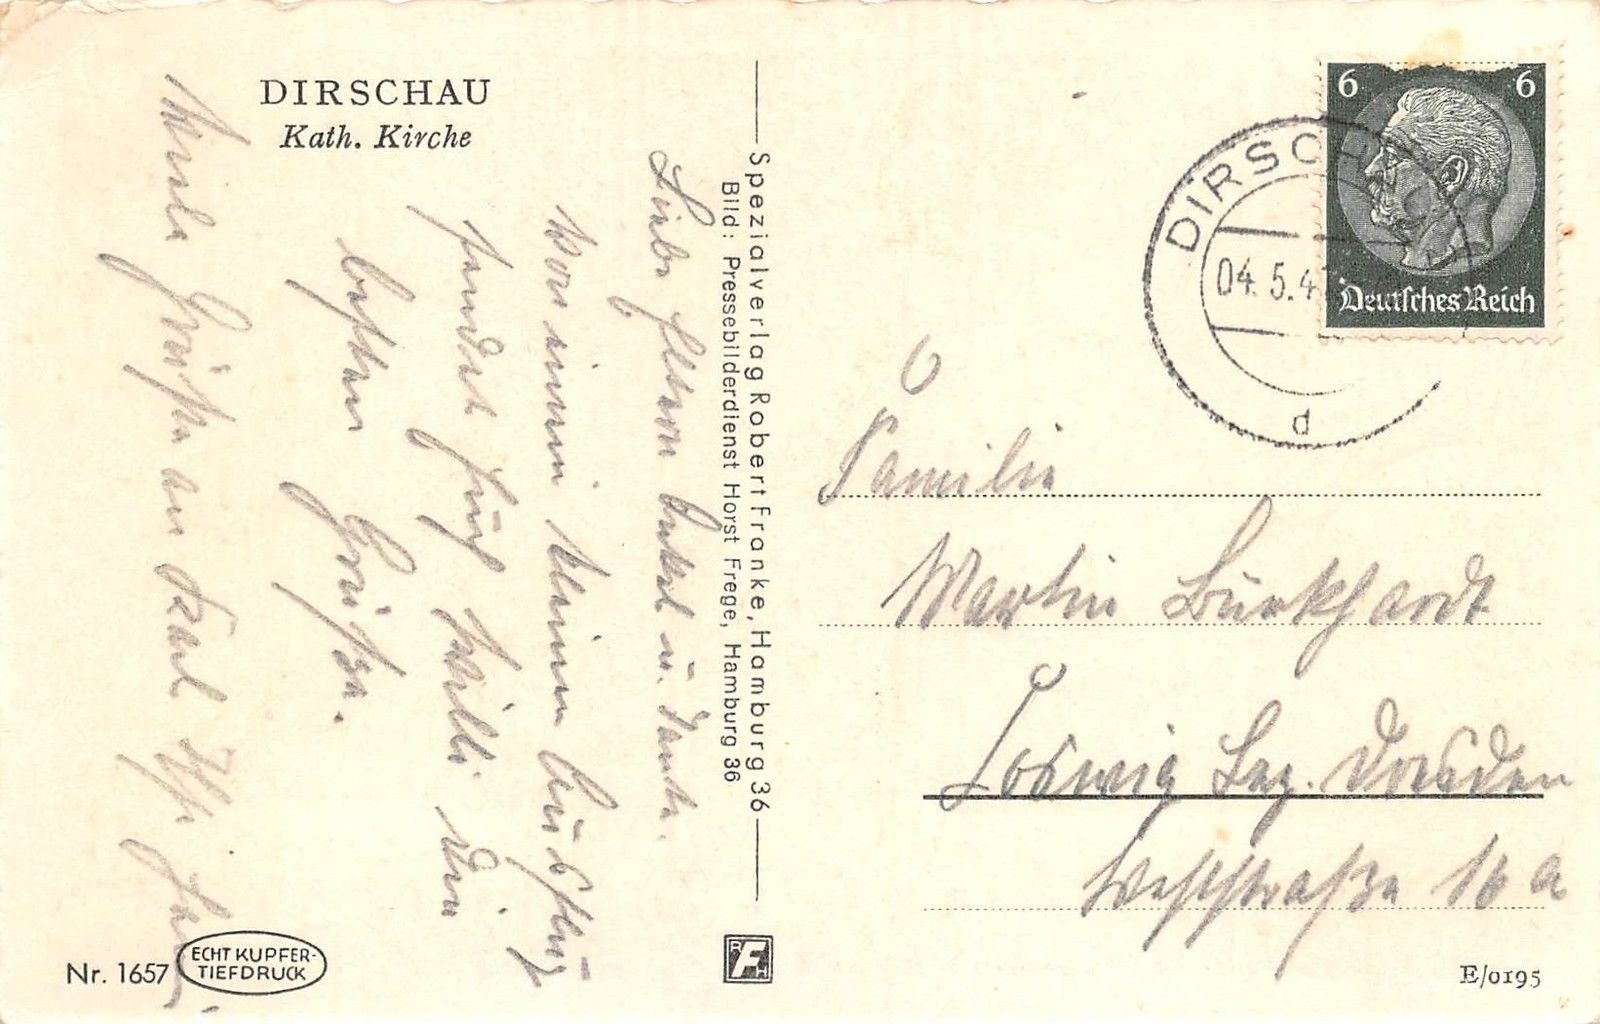 DIRSCHAU
Kath. Kirche
Liebe Eltern Onkel u. Tante.
Von einem kleinen Ausflug
sendet Euch Willi die
besten Grüße.
Viele Grüße an
Spezialverlag Robert Franke, Hamburg 36
Bild: Pressebilderdienst Horst Frege, Hamburg 36
6 6
Deutsches Reich
DIRSCH
04.5.4
d
Familie
Martin Burkhardt
Coswig Bez. Dresden
Weststraße 16 a
Nr. 1657
ECHT KUPFER-
TIEFDRUCK
RFH
E/0195